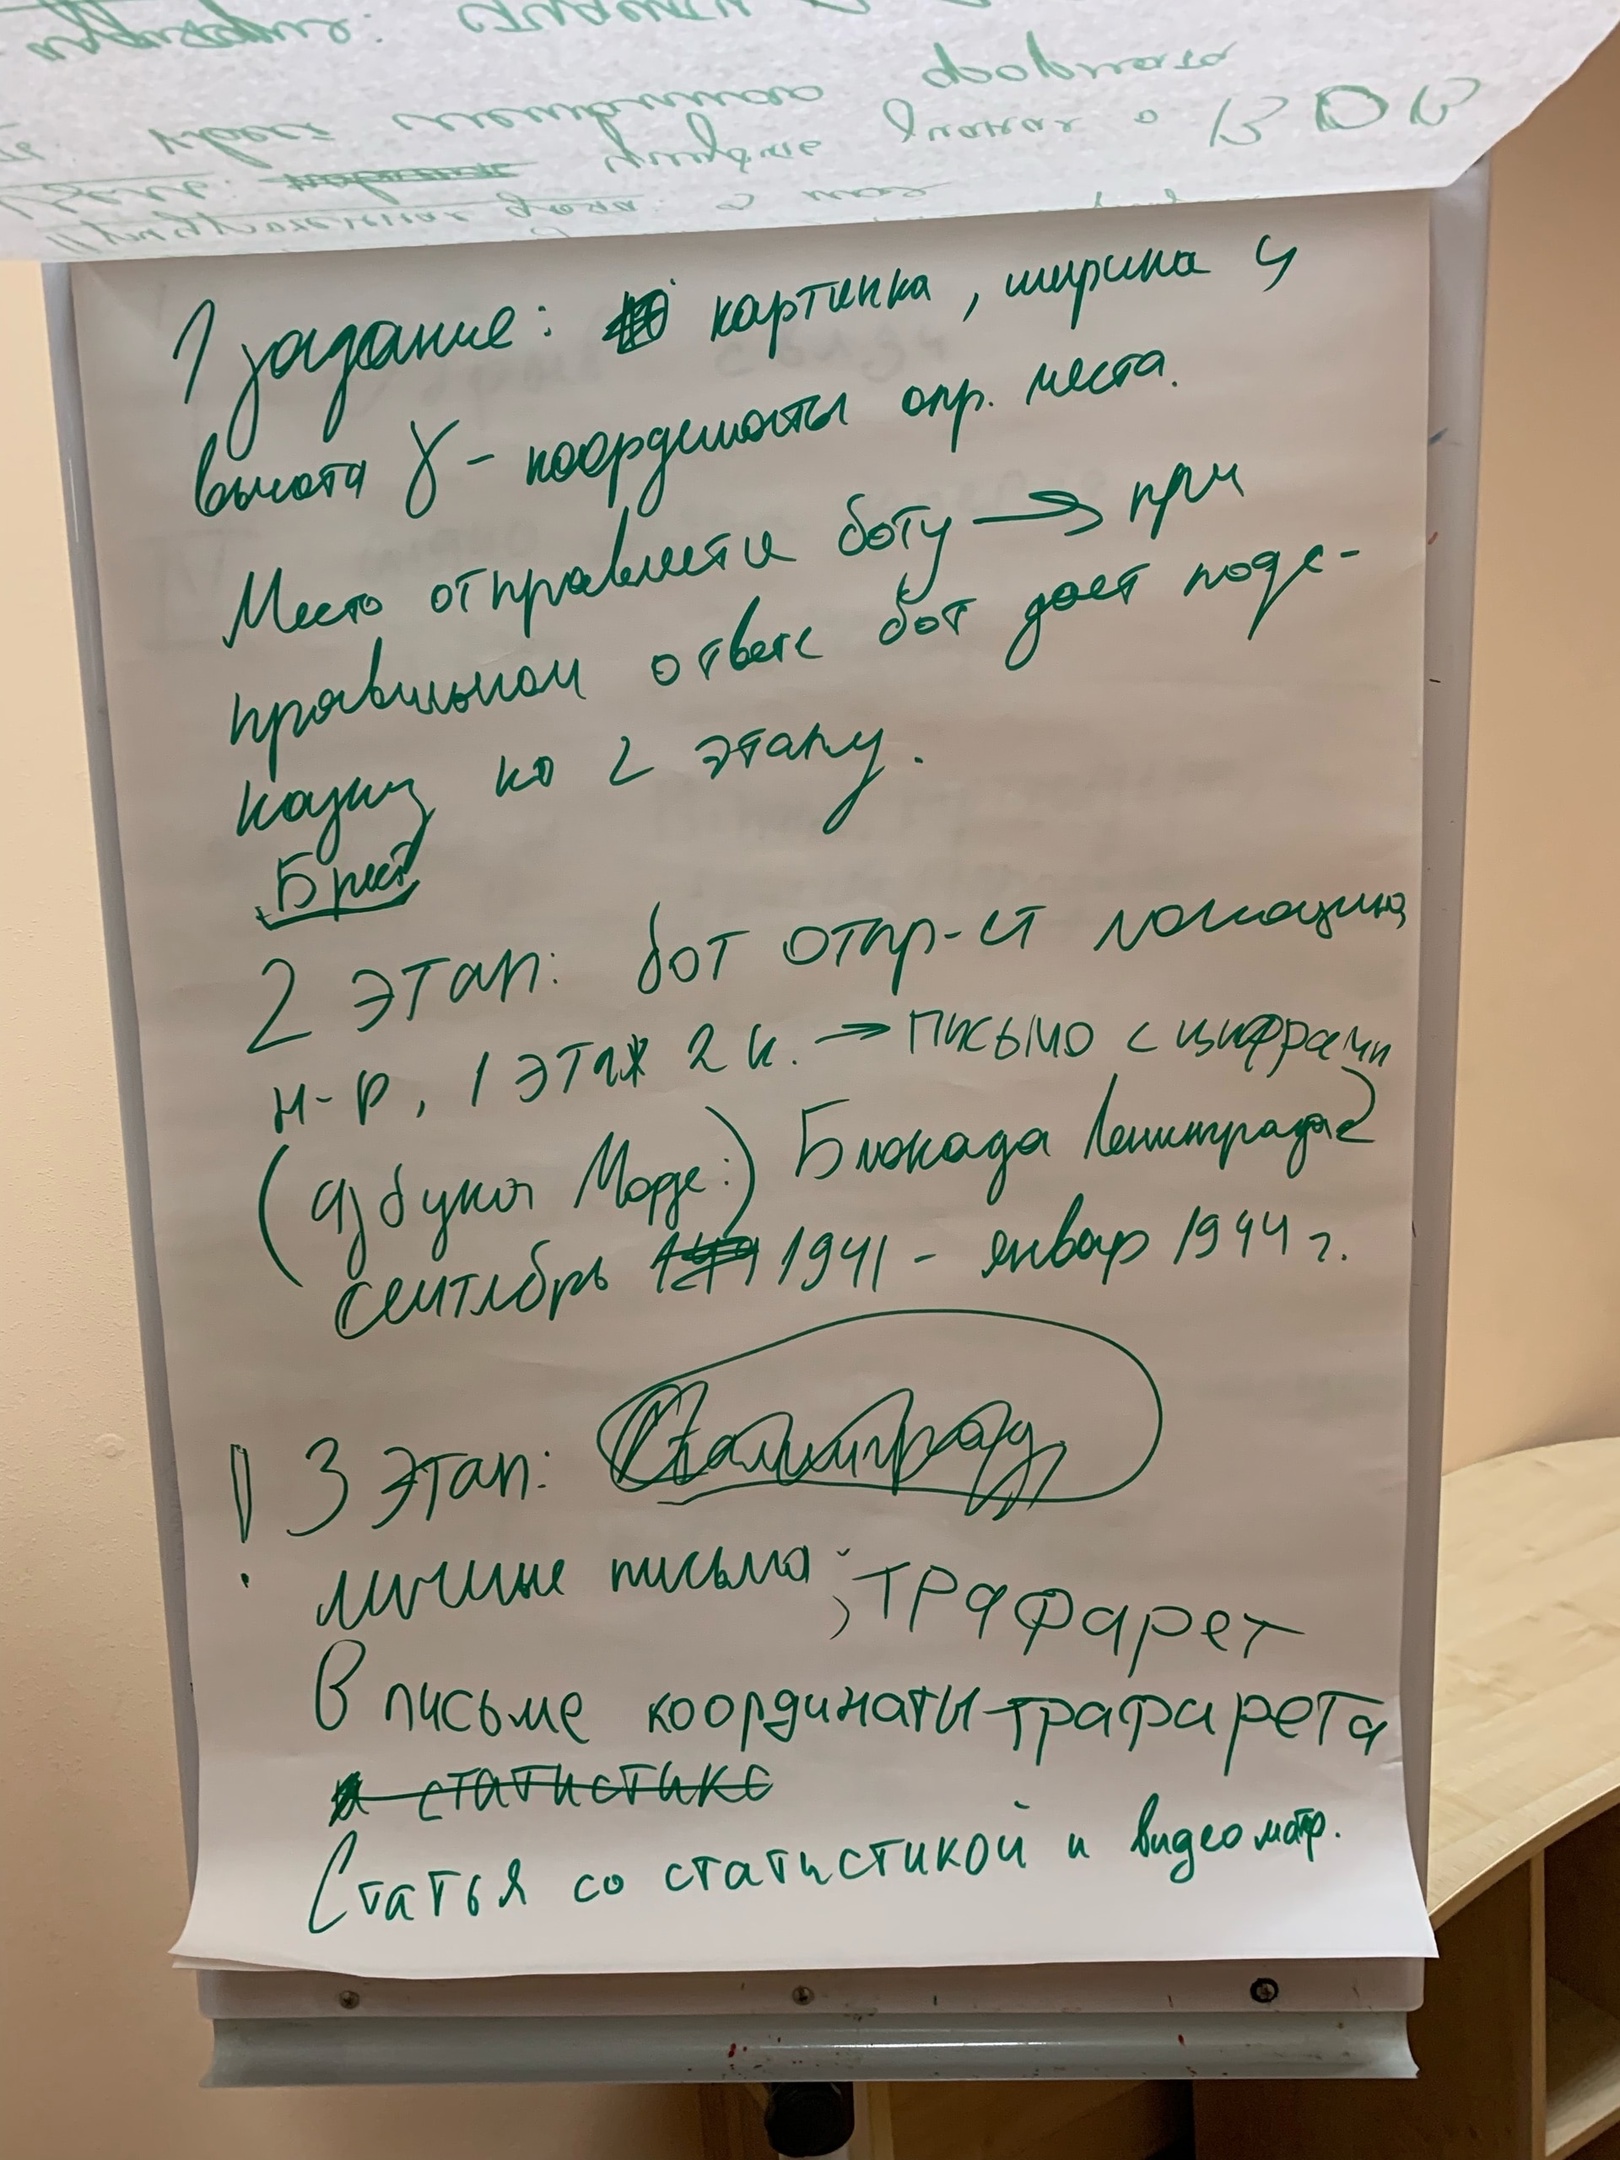 формата
знания о ВОВ
1 задание: картинка, ширина и
высота γ - координаты опр. места.
Место отправляется боту → при
правильном ответе бот дает подс-
казку ко 2 этапу.
Брест
2 этап: бот отпр-ет локацию,
н-р, 1 этаж 2 к. → письмо с цифрами
(Азбука Морзе:) Блокада Ленинграда
сентябрь 1941 - январь 1944 г.
! 3 этап: Сталинград
личные письма; трафарет
В письме координаты трафарета
и статистике
Статья со статистикой и видеоматр.